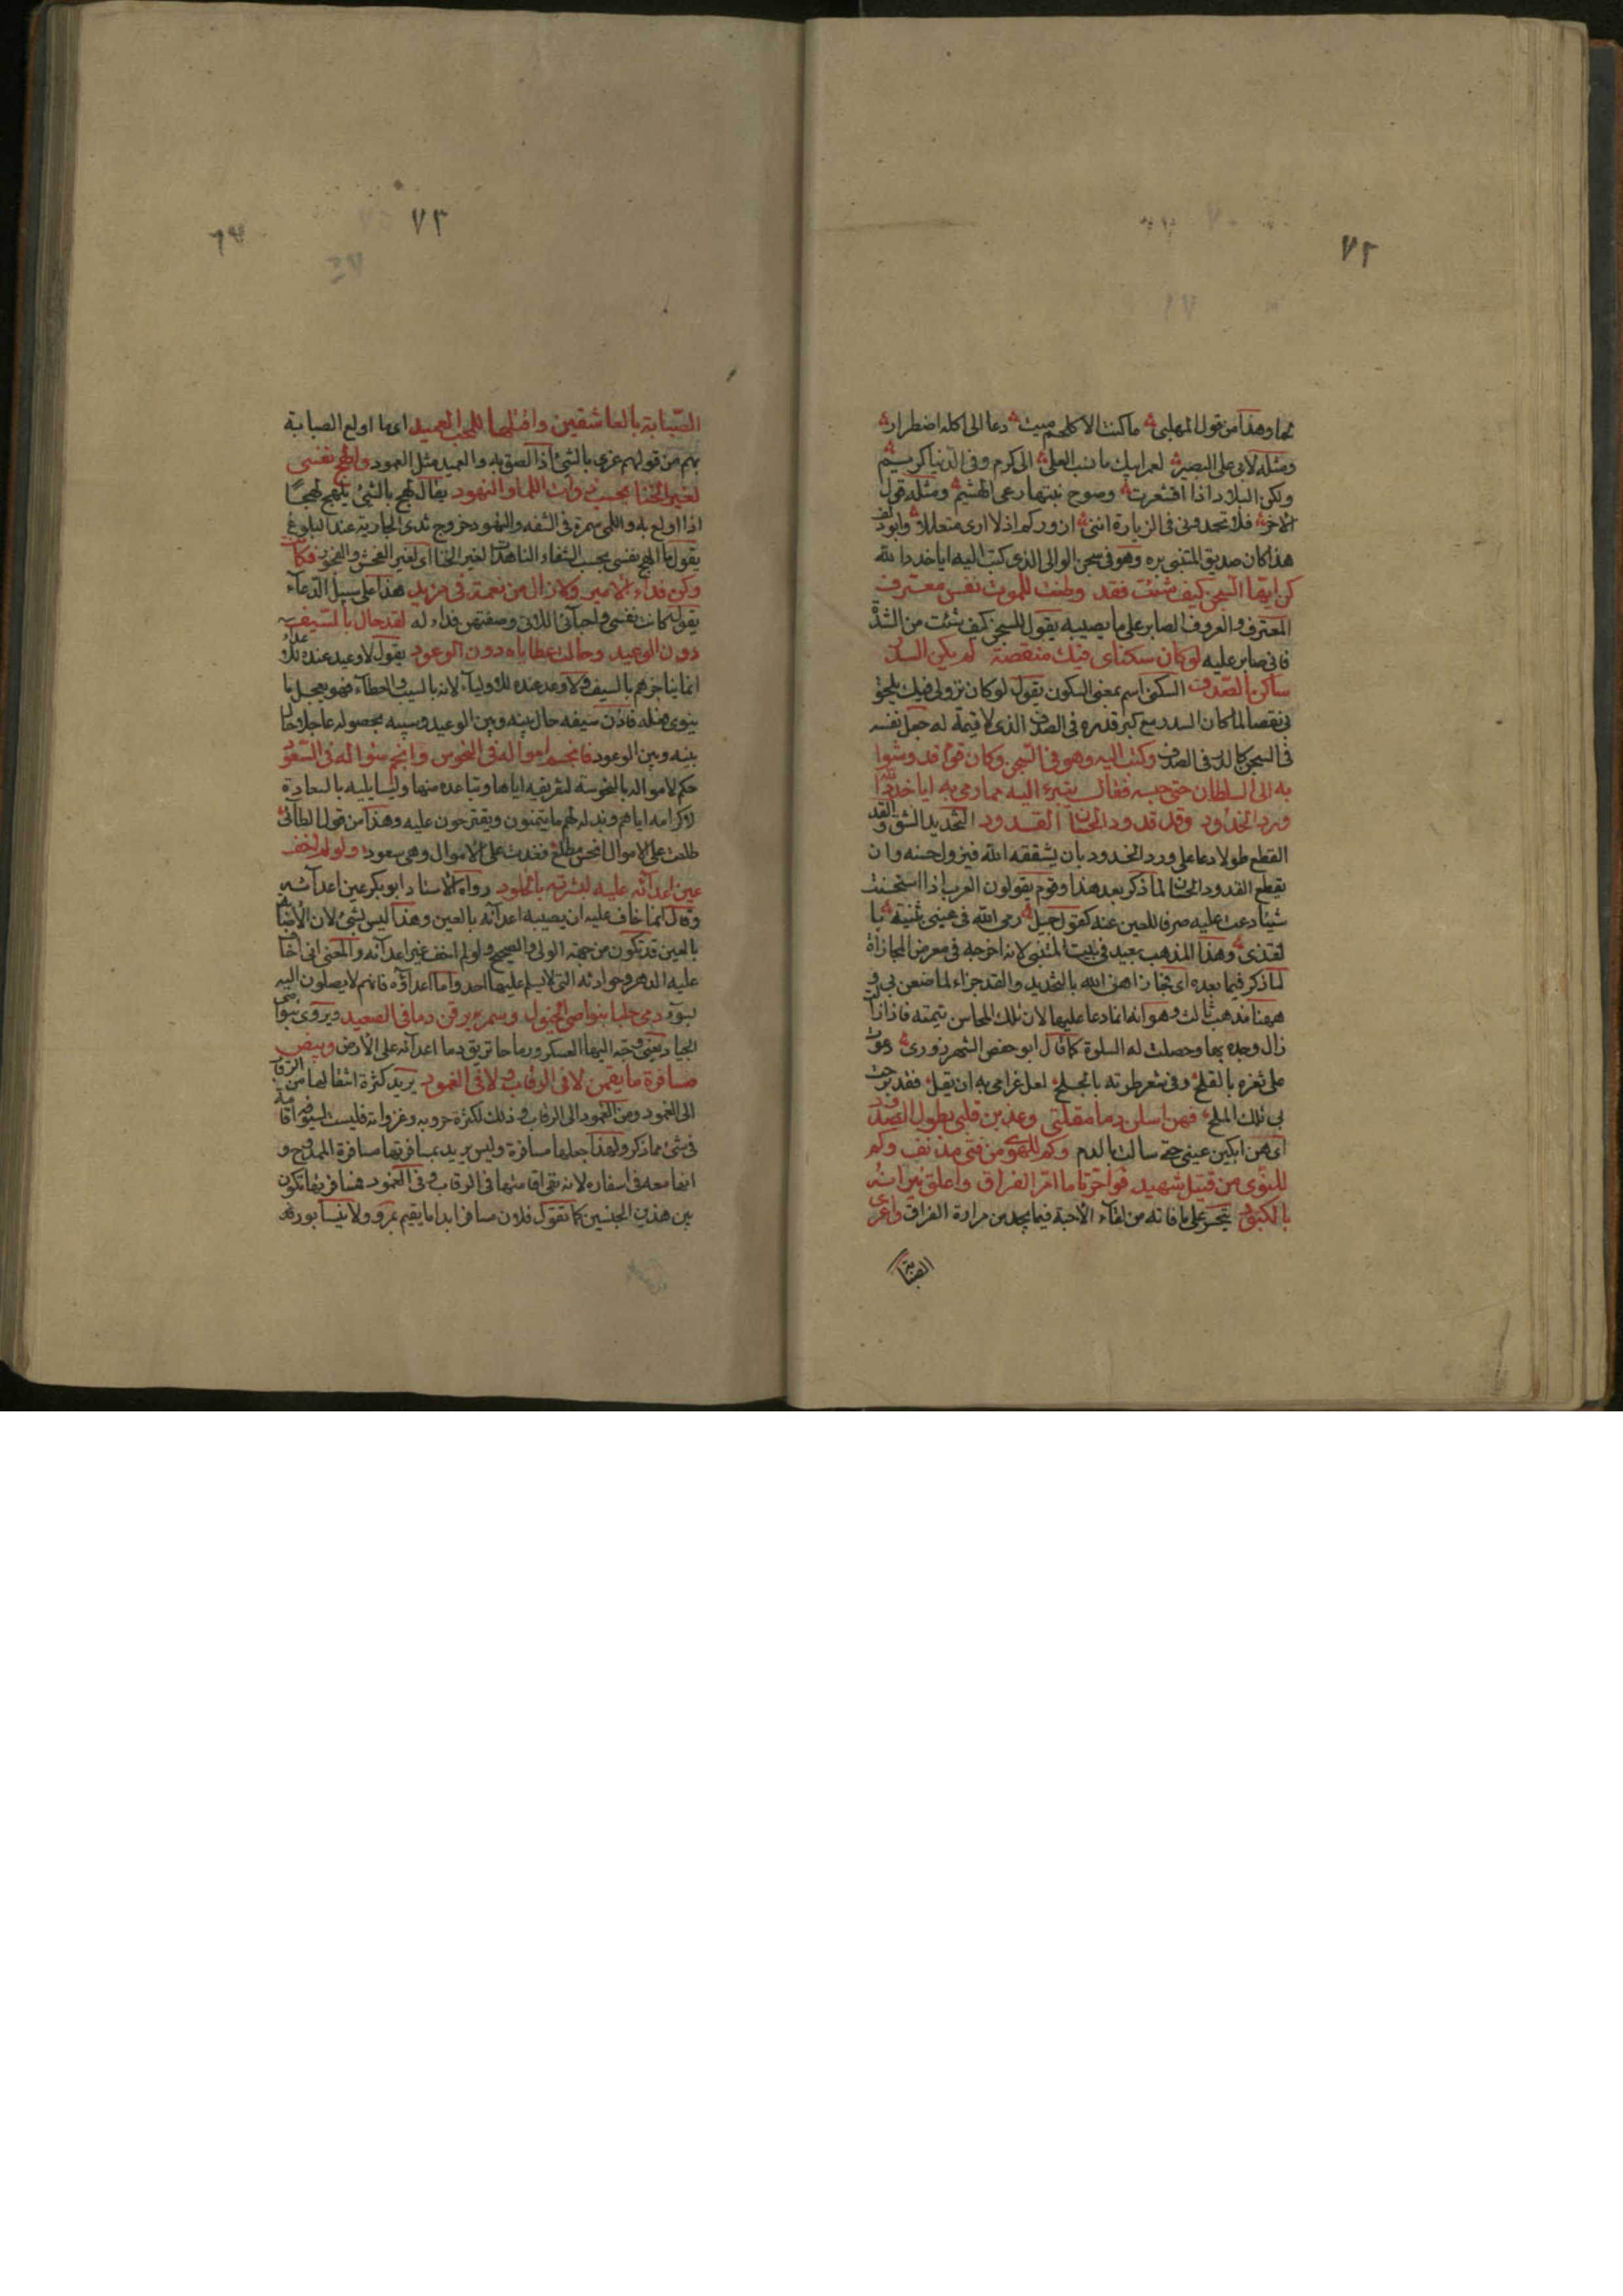 ٧٢
لحما وهذا من قول المهلبى ما كنت الا كلحم ميت دعا الى اكله اضطرار
ومثله لابى على البصير لعمر ابيك ما نسب المعلى الى كرم وفى الدنيا كريم
ولكن البلاد اذا اقشعرت وصوح نبتها رعى الهشيم ومثله قول
الاخر فلا تحمدونى فى الزيارة اننى ازوركم اذ لا ارى متعللا وابو دلف
هذا كان صديق المتنبى بره وهو فى سجن الوالى الذى كتب اليه ايا خدد الله
كن ايها السجن كيف شئت فقد وطنت للموت نفس معترف
المعترف والعروف الصابر على ما يصيبه يقول للسجن كيف شئت من الشدة
فانى صابر عليه لو كان سكناى فيك منقصة لم يكن الدر
ساكن الصدف السكنى اسم بمعنى السكون يقول لو كان نزولى فيك يلحق
بى نقصا لما كان الدر مع كبر قدره فى الصدف الذى لا قيمة له جعل نفسه
فى السجن كالدر فى الصدف وكتب اليه وهو فى السجن وكان قوم قد وشوا
به الى السلطان حتى حبسه فقال يتبرء اليه مما رمى به ايا خدد الله
ورد الخدود وقد قدود الحسان القدود التخديد الشق والقد
القطع طولا دعا على ورد الخدود بان يشققه الله فيزول حسنه وان
يقطع القدود الحسان لما ذكر بعد هذا وقوم يقولون العرب اذا استحسنت
شيئا دعت عليه صرفا للعين عنه كقول جميل رمى الله فى عينى بثينة با
لقذى وهذا المذهب بعيد فى بيت المتنبى لانه اخرجه فى معرض المجازاة
لما ذكر فيما بعده اى تجازاهن الله بالتخديد والقد جزاء لما صنعن بى و
ههنا مذهب ثالث وهو انه انما دعا عليها لان تلك المحاسن تيمته فاذا زالت
زال وجده بها وحصلت له السلوة كما قال ابو حفص الشهرزورى دعوت
على ثغره بالقلح وفى شعر طرته بالجلح لعل غرامى به ان يقل فقد برحت
بى تلك الملح فهن اسلن دما مقلتى وعذبن قلبى بطول الصدود
اى هن ابكين عينى حتى سالت بالدم وكم للهوى من فتى مدنف وكم
للنوى من قتيل شهيد فواحزنا ما امر الفراق واعلق نيرانه
بالكبود يتحسر على ما فاته من لقاء الاحبة فيما يجد من مرارة الفراق واغرى
الصبابة
٧٣
الصبابة بالعاشقين واقتلها للمحب العميد اى ما اولع الصبابة
بهم من قولهم غرى بالشئ اذا الصق به والعميد مثل المعمود والهج نفسى
لغير الخنا بحب ذوات اللما والنهود يقال لهج بالشئ يلهج لهجا
اذا اولع به واللمى سمرة فى الشفه والنهود خروج ثدى الجارية عند البلوغ
يقول ما الهج نفسى بحسب الشفاه الناهدات لغير الخنا اى لغير الفحش والفجور فكانت
وكن فداء الامير ولا زال من نعمة فى مزيد هذا على سبيل الدعاء
يقول كانت نفسى واحبائى اللاتى وصفتهن فداء له لقد حال بالسيف
دون الوعيد وحالت عطاياه دون الوعود يقول لا وعيد عنده للاعداء
انما يناجزهم بالسيف ولا وعد عنده للاولياء لانه بالسيب والعطاء فهو يعجل ما
ينوى فعله فاذن سيفه حال بينه وبين الوعيد وسيبه بحصوله عاجلا حال
بينه وبين الوعود فانجم امواله فى النحوس وانجم سؤاله فى السعود
حكم لامواله بالنحوسة لتفريقه اياها وتباعده منها ولسايليه بالسعادة
لاكرامه اياهم وبذله لهم ما يتمنون ويقترحون عليه وهذا من قول الطائى
طلعت على الاموال انحس مطلع فغدت على الامال وهى سعود ولو لم اخف
عين اعدائه عليه لبشرته بالخلود رواه الاستاد ابو بكر عين اعدائه
وقال انما خاف عليه ان يصيبه اعدائه بالعين وهذا ليس بشئ لان الاصابة
بالعين قد تكون من جهة الولى والصحيح ولو لم اخف غير اعدائه والمعنى انى اخاف
عليه الدهر وحوادثه التى لا يسلم عليها احد واما اعداؤه فانهم لا يصلون اليه
بسوء رمى حلبا بنواصى الخيول وسمر يرقن دما فى الصعيد ويروى بنواصى
الجياد يعنى وجه اليها العسكر ورماحا تريق دما اعدائه على الارض وبيض
مسافرة ما يقمن لا فى الرقاب ولا فى الغمود يريد كثرة انتقالها من الرقاب
الى الغمود ومن الغمود الى الرقاب وذلك لكثرة حروبه وغزواته فليست لسيوفه اقامة
فى شئ مما ذكر ولهذا جعلها مسافرة وليس يريد بمسافرتها مسافرة الممدوح و
انها معه فى اسفاره لانه نفى اقامتها فى الرقاب وفى الغمود فمسافرتها تكون
بين هذين الجنسين كما تقول فلان مسافر ابدا ما يقيم بمرو ولا بنيسابور فه